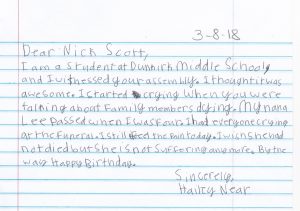 3-8-18
Dear Nick Scott,
I am a student at Dunkirk Middle School,
and I witnessed your assembly. I thought it was
awesome. I started crying when you were
talking about family members dying. My nana
Lee passed when I was four. I had everyone crying
at the funeral. I still feel the pain today. I wish she had
not died but she is not suffering anymore. By the
way Happy Birthday.
Sincerely,
Hailey Near